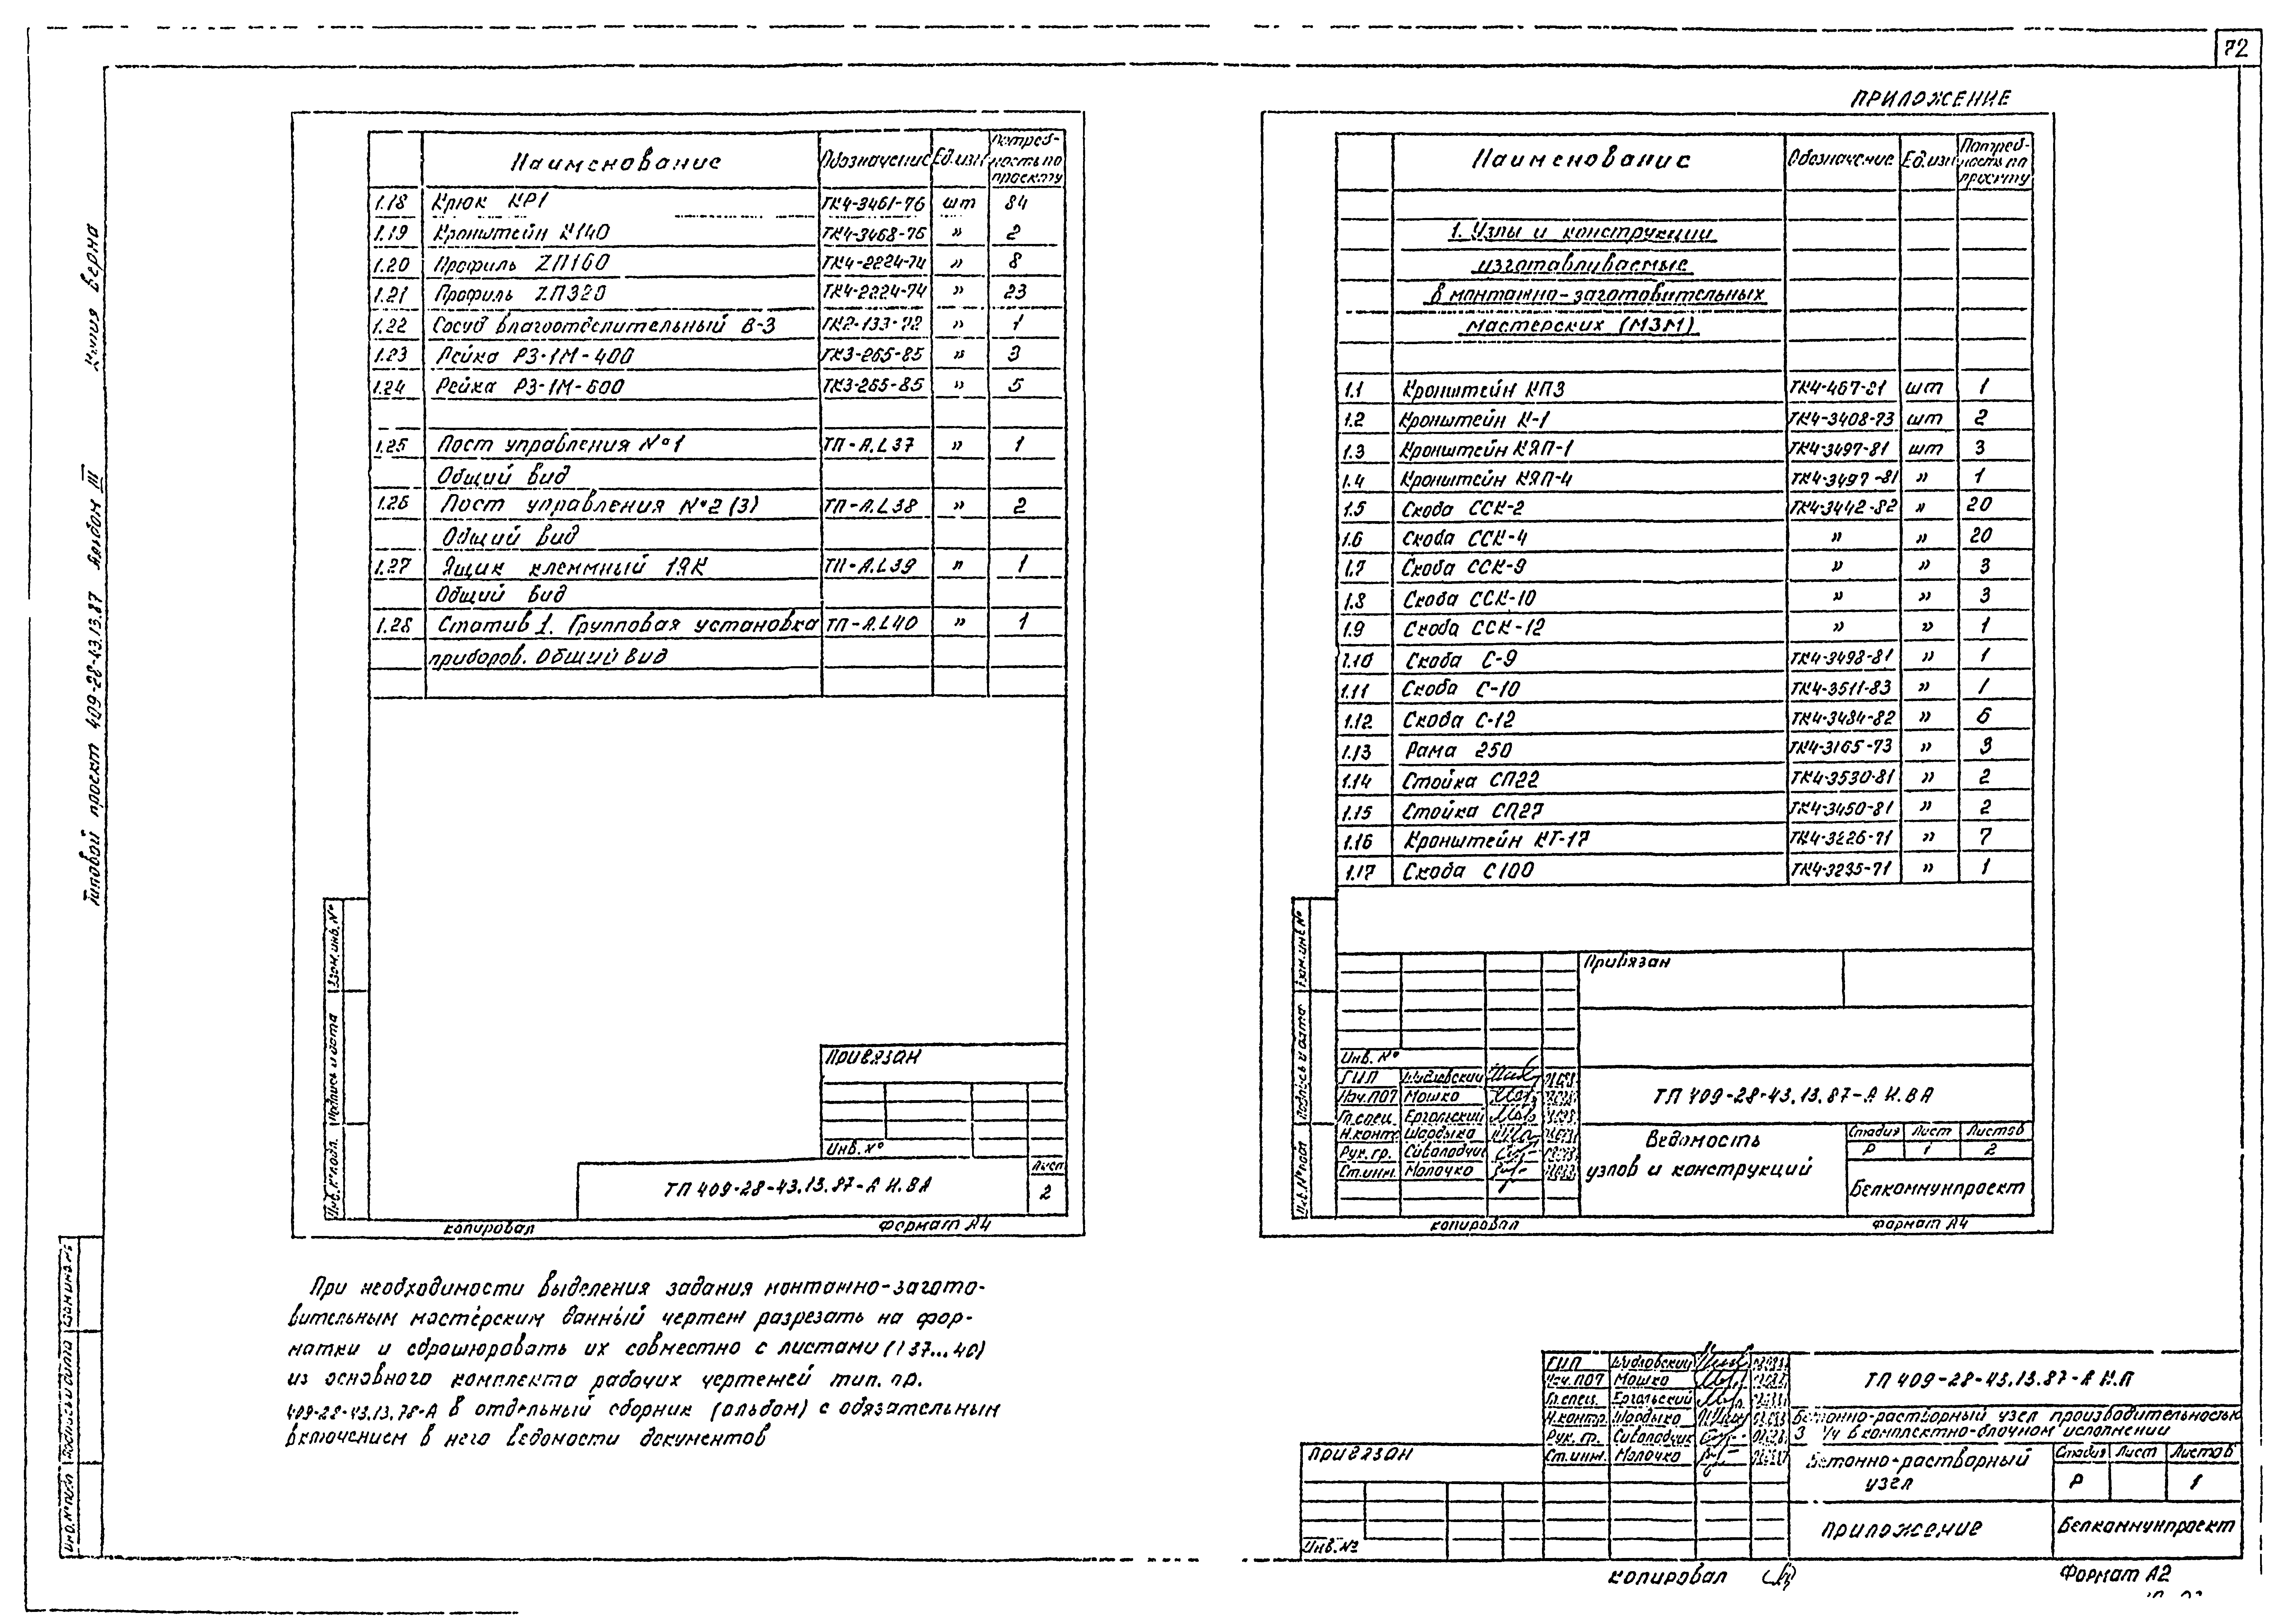 72
ПРИЛОЖЕНИЕ
Типовой проект 409-28-43.13.87 Альбом III Копия верна
Наименование Обозначение Ед.изм Потреб-
ность по
проекту
1.18 Крюк КР1 ТК4-3461-76 шт 84
1.19 Кронштейн К140 ТК4-3468-76 » 2
1.20 Профиль ZП160 ТК4-2224-74 » 8
1.21 Профиль ZП320 ТК4-2224-74 » 23
1.22 Сосуд влагоотделительный В-3 ТК2-133-72 » 1
1.23 Рейка РЗ-1М-400 ТК3-265-85 » 3
1.24 Рейка РЗ-1М-600 ТК3-265-85 » 5
1.25 Пост управления №1 ТП-А.L37 » 1
Общий вид
1.26 Пост управления №2 (3) ТП-А.L38 » 2
Общий вид
1.27 Ящик клеммный 1ЯК ТП-А.L39 » 1
Общий вид
1.28 Статив 1. Групповая установка ТП-А.L40 » 1
приборов. Общий вид
Привязан
Инв. №
ТП 409-28-43.13.87-А И.ВА
Лист
2
копировал Формат А4
Взам.инв.№
Подпись и дата
Инв.№подл.
Наименование Обозначение Ед.изм Потреб-
ность по
проекту
1. Узлы и конструкции
изготавливаемые
в монтажно-заготовительных
мастерских (МЗМ)
1.1 Кронштейн КП3 ТК4-467-81 шт 1
1.2 Кронштейн К-1 ТК4-3408-73 шт 2
1.3 Кронштейн КЯП-1 ТК4-3497-81 шт 3
1.4 Кронштейн КЯП-4 ТК4-3497-81 » 1
1.5 Скоба ССК-2 ТК4-3442-82 » 20
1.6 Скоба ССК-4 » » 20
1.7 Скоба ССК-9 » » 3
1.8 Скоба ССК-10 » » 3
1.9 Скоба ССК-12 » » 1
1.10 Скоба С-9 ТК4-3498-81 » 1
1.11 Скоба С-10 ТК4-3511-83 » 1
1.12 Скоба С-12 ТК4-3484-82 » 6
1.13 Рама 250 ТК4-3165-73 » 3
1.14 Стойка СП22 ТК4-3530-81 » 2
1.15 Стойка СП27 ТК4-3450-81 » 2
1.16 Кронштейн КТ-17 ТК4-3226-71 » 7
1.17 Скоба С100 ТК4-3235-71 » 1
Взам.инв.№
Подпись и дата
Инв.№подл
Привязан
Инв. №
ГИП Шидловский
Нач.ПОТ Мошко
Гл.спец. Ергольский
Н.контр Шардыко
Рук. гр. Сиволодчик
Ст.инж. Молочко
ТП 409-28-43.13.87-А И.ВА
Ведомость
узлов и конструкций
Стадия Лист Листов
Р 1 2
Белкоммунпроект
копировал Формат А4
При необходимости выделения задания монтажно-загото-
вительным мастерским данный чертеж разрезать на фор-
матки и сброшюровать их совместно с листами (137...40)
из основного комплекта рабочих чертежей тип. пр.
409-28-43.13.78-А в отдельный сборник (альбом) с обязательным
включением в него ведомости документов
Взам.инв.№
Подпись и дата
Инв.№подл
Привязан
Инв.№
ГИП Шидловский
Нач.ПОТ Мошко
Гл.спец. Ергольский
Н.контр. Шардыко
Рук. гр. Сиволодчик
Ст.инж. Молочко
ТП 409-28-43.13.87-А И.П
Бетонно-растворный узел производительностью
3 /ч в комплектно-блочном исполнении
Бетонно-растворный
узел
Стадия Лист Листов
Р 1
Приложение
Белкоммунпроект
копировал
Формат А2